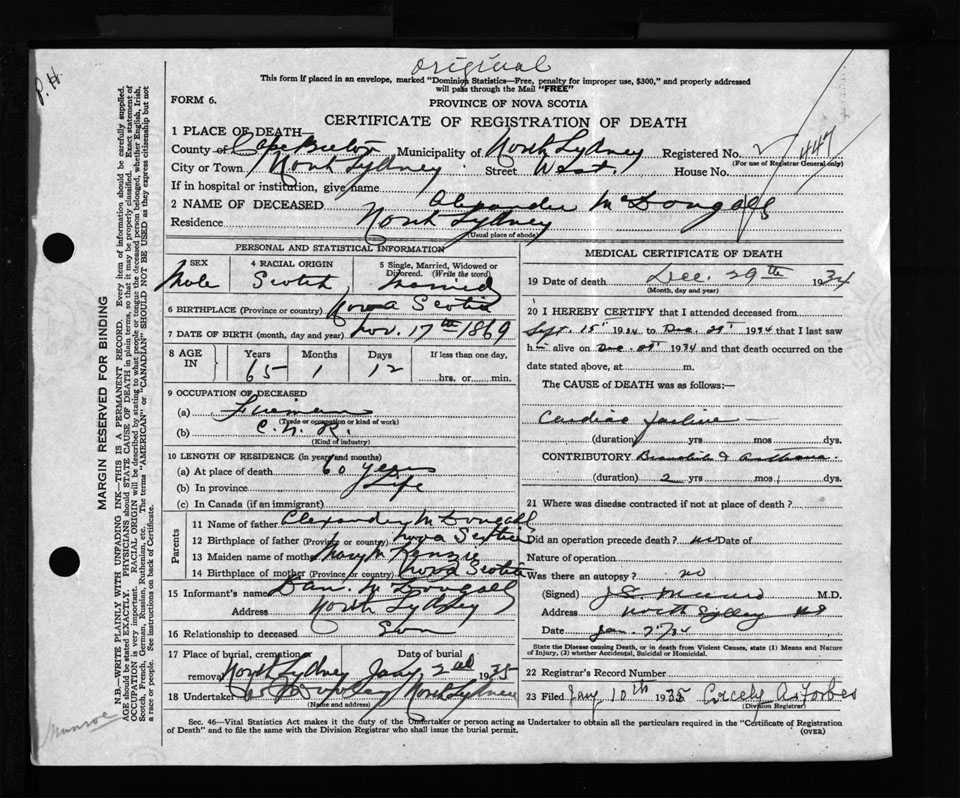 original
This form if placed in an envelope, marked "Dominion Statistics—Free, penalty for improper use, $300," and properly addressed
will pass through the Mail "FREE"
P.H.
FORM 6.
PROVINCE OF NOVA SCOTIA
CERTIFICATE OF REGISTRATION OF DEATH
1 PLACE OF DEATH—
County of Cape Breton Municipality of North Sydney Registered No. 447
(For use of Registrar General only)
City or Town North Sydney Street West. House No.
If in hospital or institution, give name
2 NAME OF DECEASED Alexander McDougall
Residence North Sydney
(Usual place of abode)
PERSONAL AND STATISTICAL INFORMATION
3 SEX Male
4 RACIAL ORIGIN Scotch
5 Single, Married, Widowed or Divorced. (Write the word) Married
6 BIRTHPLACE (Province or country) Nova Scotia
7 DATE OF BIRTH (month, day and year) Nov. 17th 1869
8 AGE IN Years Months Days If less than one day,
65 1 12 hrs. or min.
9 OCCUPATION OF DECEASED
(a) Fireman
(Trade or occupation or kind of work)
(b) C.N.R.
(Kind of industry)
10 LENGTH OF RESIDENCE (in years and months)
(a) At place of death 60 years
(b) In province Life
(c) In Canada (if an immigrant)
Parents
11 Name of father Alexander McDougall
12 Birthplace of father (Province or country) Nova Scotia
13 Maiden name of mother Mary McKenzie
14 Birthplace of mother (Province or country) Nova Scotia
15 Informant's name Dan. McDougall
Address North Sydney
16 Relationship to deceased Son
17 Place of burial, cremation or removal Date of burial
North Sydney Jany 2nd 1935
18 Undertaker North Sydney
(Name and address)
MEDICAL CERTIFICATE OF DEATH
19 Date of death Dec. 29th 1934
(Month, day and year)
20 I HEREBY CERTIFY that I attended deceased from
Sept. 15th 1934 to Dec. 1934 that I last saw
h alive on Dec. 1934 and that death occurred on the
date stated above, at m.
The CAUSE of DEATH was as follows:—
Cardiac failure
(duration) yrs mos dys.
CONTRIBUTORY Bronchitis & Asthma.
(duration) 2 yrs mos. dys.
21 Where was disease contracted if not at place of death?
Did an operation precede death? no Date of
Nature of operation
Was there an autopsy? no
(Signed) M.D.
Address North Sydney NS
Date Jan.
State the Disease causing Death, or in death from Violent Causes, state (1) Means and Nature
of Injury, (2) whether Accidental, Suicidal or Homicidal.
22 Registrar's Record Number
23 Filed Jany 10th 1935 Forbes
(Division Registrar)
Sec. 46—Vital Statistics Act makes it the duty of the Undertaker or person acting as Undertaker to obtain all the particulars required in the "Certificate of Registration
of Death" and to file the same with the Division Registrar who shall issue the burial permit.
(OVER)
MARGIN RESERVED FOR BINDING
N.B.—WRITE PLAINLY WITH UNFADING INK—THIS IS A PERMANENT RECORD. Every item of information should be carefully supplied.
AGE should be stated EXACTLY. PHYSICIANS should STATE CAUSE OF DEATH in plain terms, so that it may be properly classified. Exact statement of
OCCUPATION is very important. RACIAL ORIGIN will be described by stating to what people or tongue the deceased person belonged, whether English, Irish,
Scotch, French, German, Russian, Ruthenian, etc. The terms "AMERICAN" or "CANADIAN" SHOULD NOT BE USED as they express citizenship but not
a race or people. See instructions on back of Certificate.
Munroe